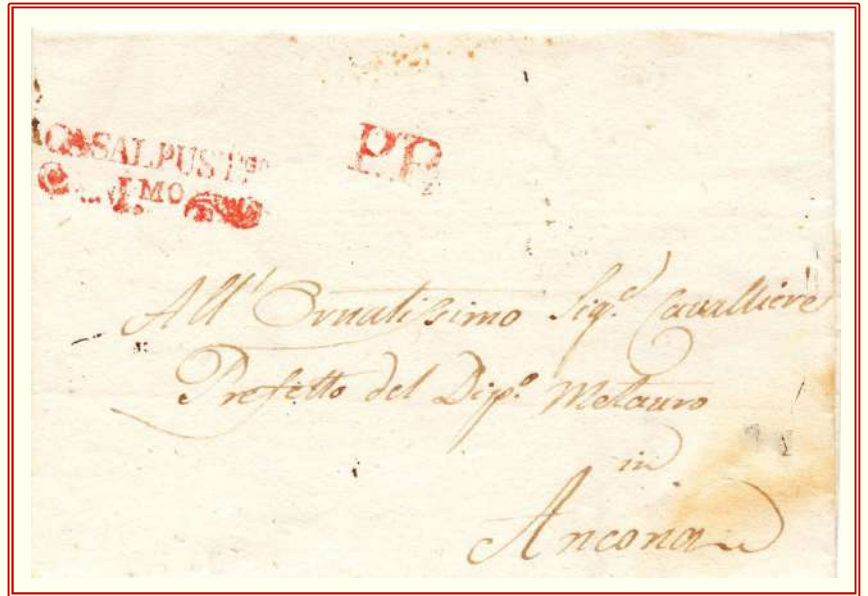 CASALPUSTgo
P.P.
All' Ornatissimo Sigr. Cavalliere
Prefetto del Dipo. Metauro
in
Ancona